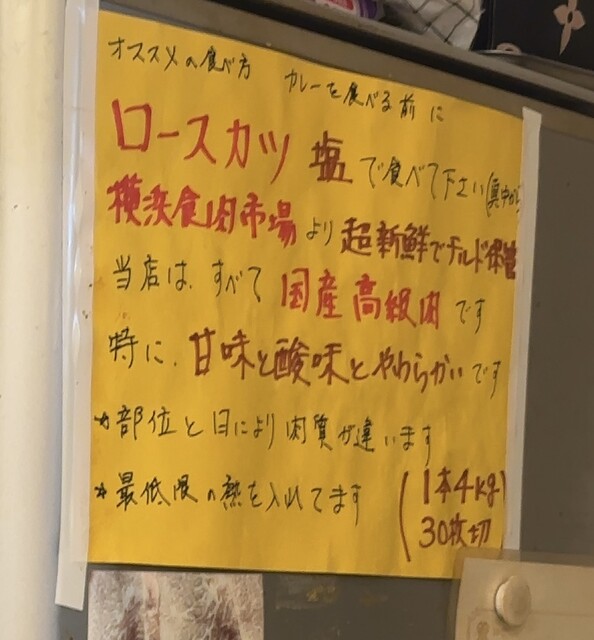 オススメの食べ方 カレーを食べる前に
ロースカツ 塩で食べて下さい(真中から)
横浜食肉市場より超新鮮でチルド保管
当店は、すべて国産高級肉です
特に、甘味と酸味とやわらかいです
*部位と日により肉質が違います
*最低限の熱を入れてます
(1本4kg)
30枚切